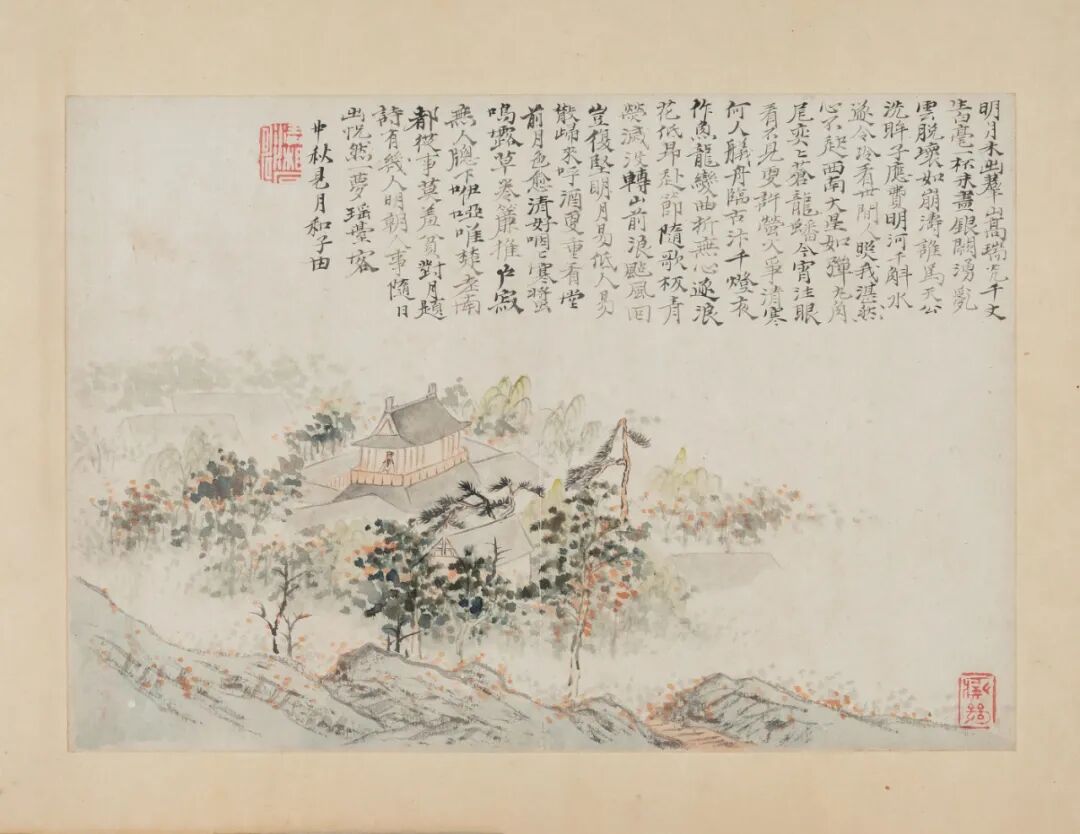 明月未出羣山高瑞光千丈
生白毫一杯未盡銀闕湧亂
雲脫壞如崩濤誰為天公
洗眸子應費明河千斛水
遂令冷看世間人照我湛然
心不起西南大星如彈丸角
尾奕奕蒼龍蟠今宵注眼
看不見更許螢火爭清寒
何人艤舟臨古汴千燈夜
作魚龍變曲折無心逐浪
花低昂赴節隨歌板青
熒滅沒轉山前浪颭風回
豈復堅明月易低人易
散歸來呼酒更重看堂
前月色愈清好咽咽寒螿
鳴露草卷簾推戶寂
無人牕下咿啞唯楚老南
都從事莫羞貧對月題
詩有幾人明朝人事隨日
出恍然一夢瑤臺客
中秋見月和子由